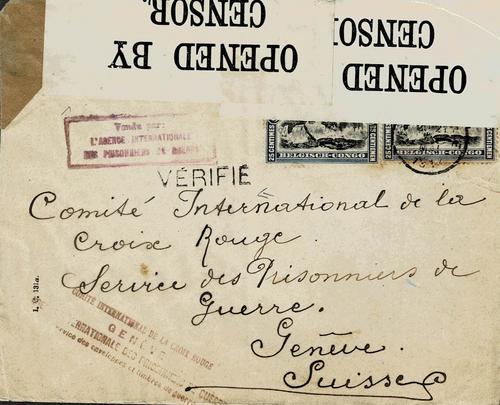 OPENED BY
CENSOR.
OPENED
CENSOR.
Vendu par:
L'AGENCE INTERNATIONALE
DES PRISONNIERS DE GUERRE
25 CENTIMES
BELGISCH-CONGO
BELGISCH-CONGO
VÉRIFIÉ
Comité International de la
Croix Rouge.
Service des Prisonniers de
Guerre.
Genève.
Suisse
COMITÉ INTERNATIONAL DE LA CROIX ROUGE
GENÈVE
INTERNATIONALE DES PRISONNIERS
Service des enveloppes et timbres de guerre